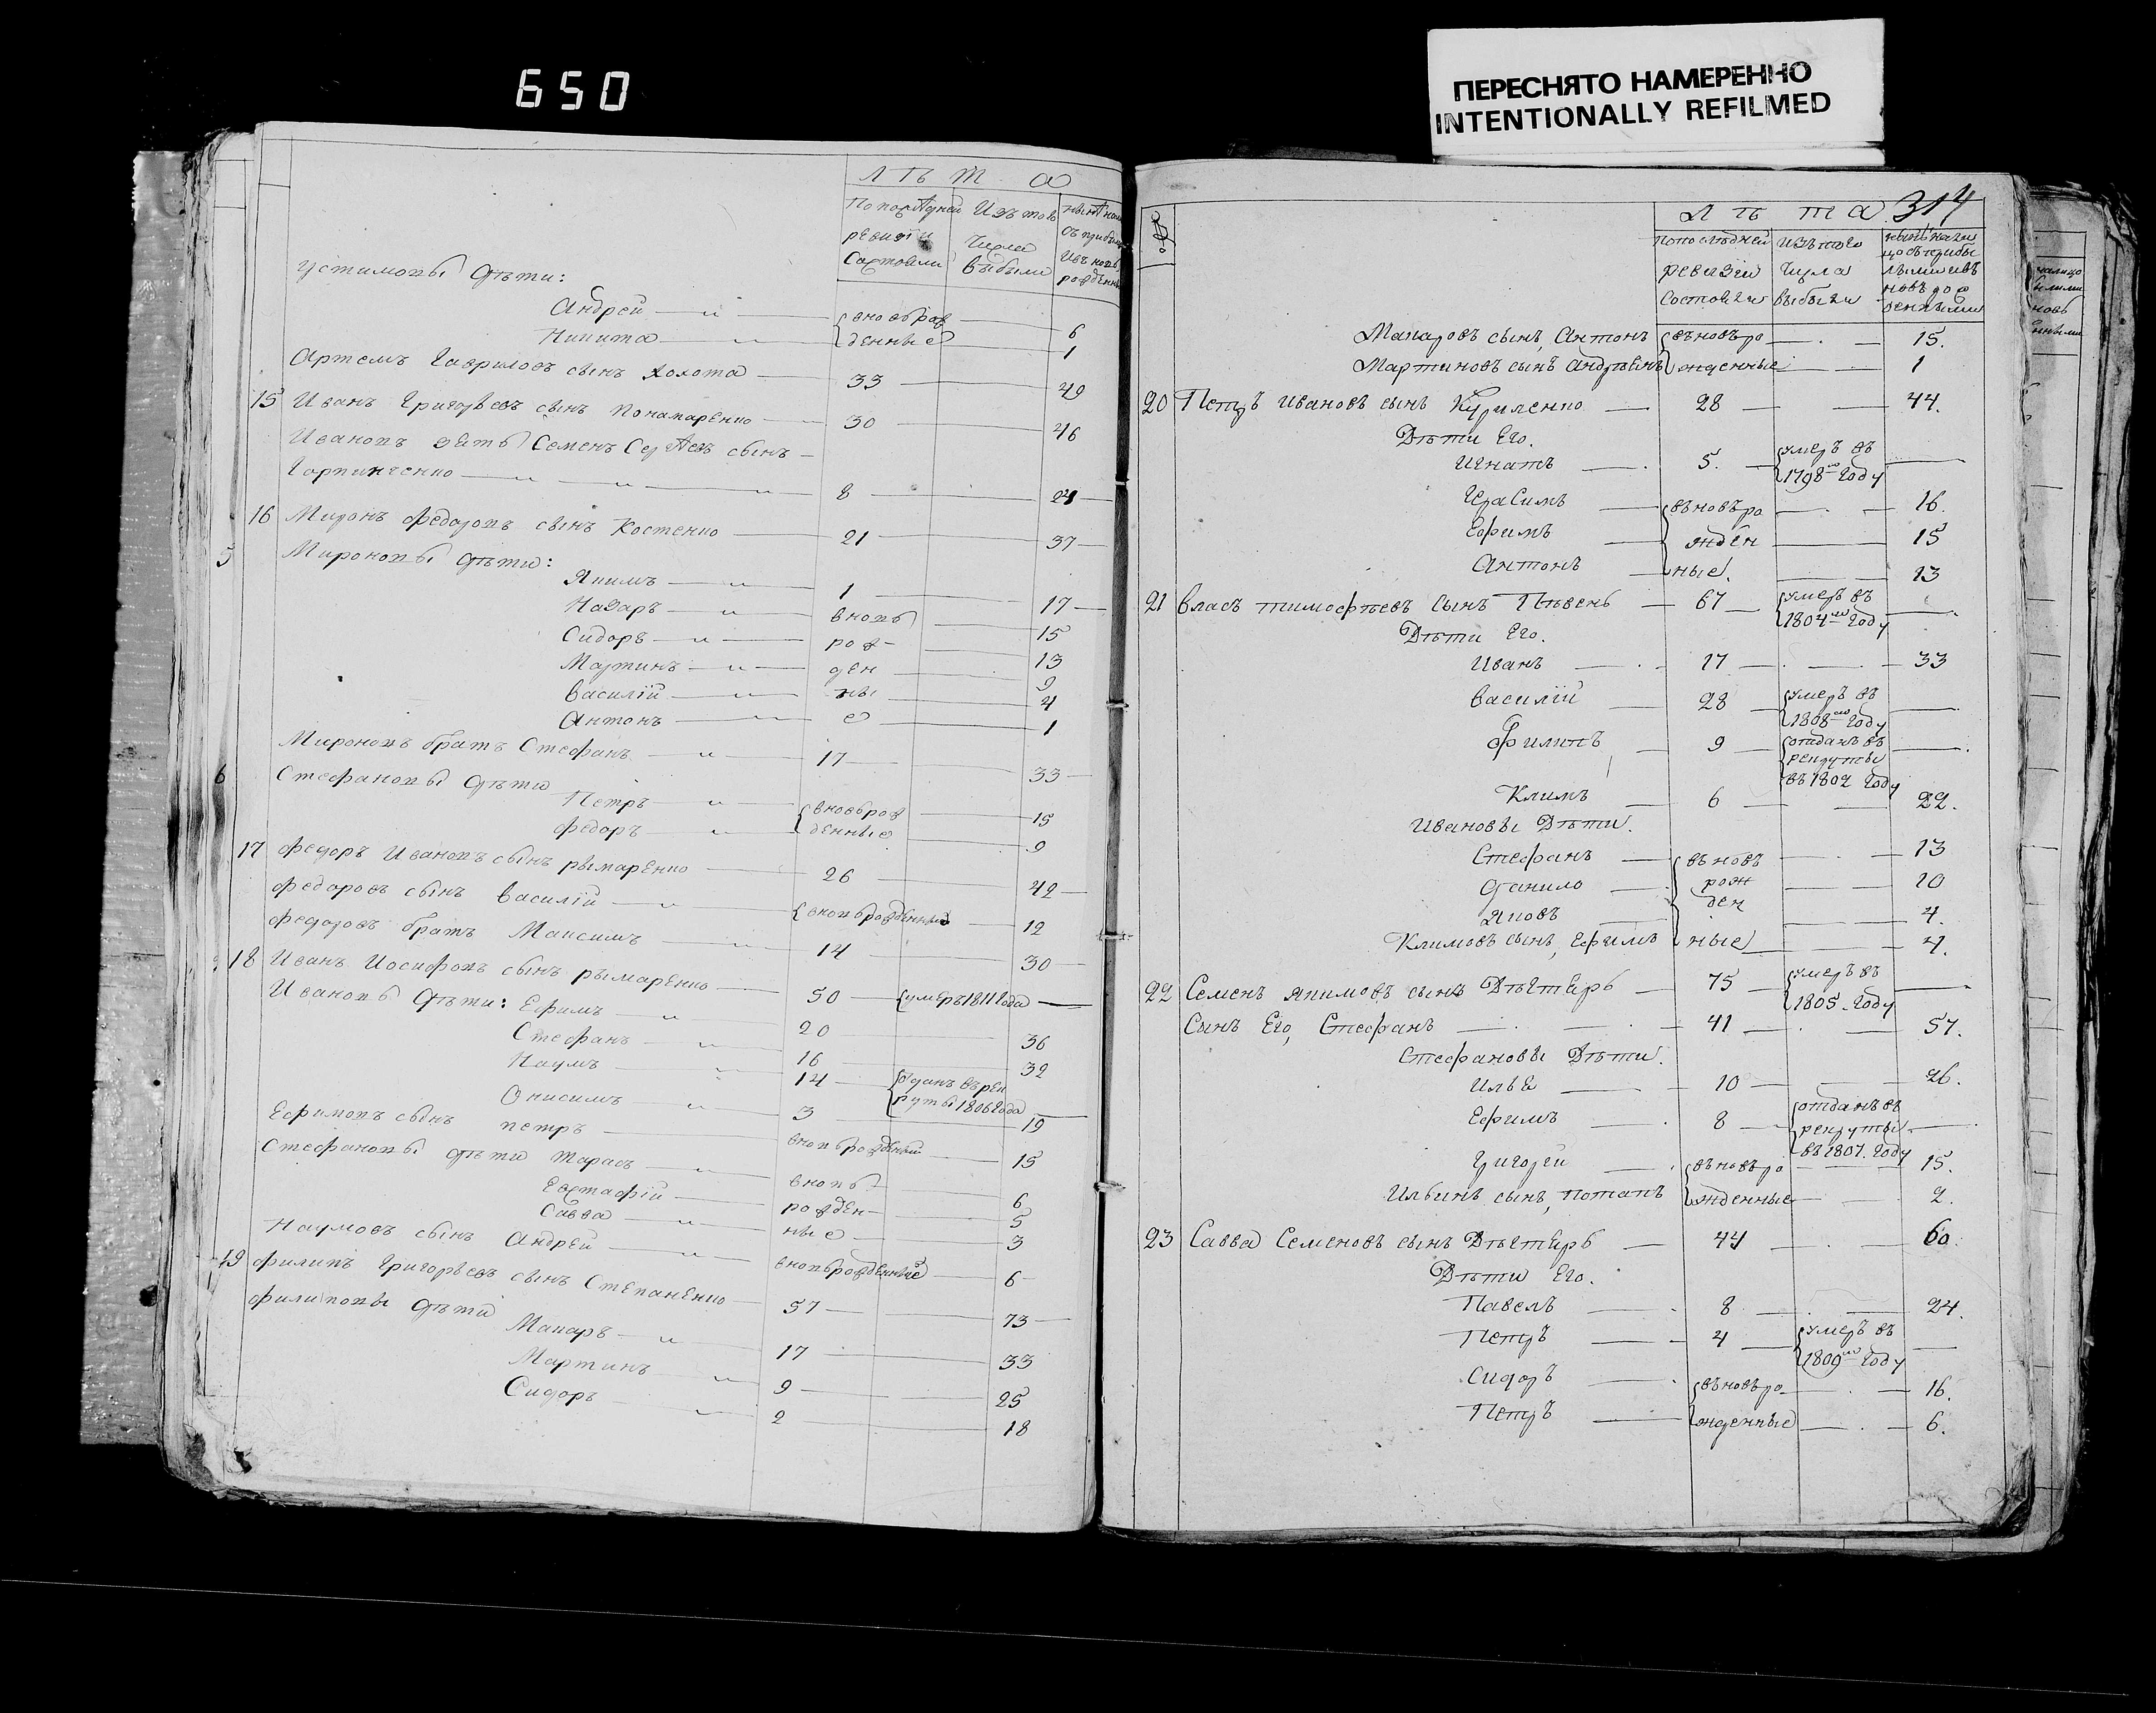 650
ПЕРЕСНЯТО НАМЕРЕННО
INTENTIONALLY REFILMED
Л Ѣ Т А
По послѣдней ревизіи состояли
Изъ того числа выбыли
Устимовы дѣти:
Андрей — вновьрож 6
Никита — денные 1
Артемъ Гавриловъ сынъ Холота — 33 — 49
15 Иванъ Григорьевъ сынъ Понамаренко — 30 — 46
Ивановъ зять Семенъ Сергѣевъ сынъ —
Гарпинченко — 8 — 24
16 Миронъ Федоровъ сынъ Костенко — 21 — 37
5 Мироновы дѣти:
Якимъ — 1 — 17
Назаръ — вновь 15
Сидоръ — рож- 13
Мартинъ — ден 9
Василій — ны 4
Антонъ — е 1
Мироновъ братъ Стефанъ — 17 — 33
6 Стефановы дѣти
Петръ — вновьрож 15
Федоръ — денные 9
17 Федоръ Ивановъ сынъ Рымаренко — 26 — 42
Федоровъ сынъ Василій — вновьрожденный 12
Федоровъ братъ Максимъ — 14 — 30
18 Иванъ Иосифовъ сынъ Рымаренко — 50 — умеръ 1811 года —
Ивановы дѣти: Ефимъ — 20 — 36
Стефанъ — 16 — 32
Наумъ — 14 — отданъ въ рек
руты 1806 года
Онисимъ — 3 — 19
Ефимовъ сынъ Петръ — вновьрожденный 15
Стефановы дѣти Тарасъ — вновь 6
Евстафій — рожден- 5
Савва — ные 3
Наумовъ сынъ Андрей — вновьрожденный 6
19 Филипъ Григорьевъ сынъ Степаненко — 57 — 73
Филиповы дѣти
Макаръ — 17 — 33
Мартинъ — 9 — 25
Сидоръ — 2 — 18
314
№
Л ѣ т а
по послѣдней ревизіи состояли
изъ того числа выбыли
нынѣ на лицо съ прибылыми и въ новь рожденными
Макаровъ сынъ, Антонъ въновьро — 15.
Мартиновъ сынъ Андрѣянъ жденные — 1
20 Петръ Ивановъ сынъ Куриленко — 28 — 44.
Дѣти Его.
Игнатъ — 5. — умеръ въ
1798мъ Году
Герасимъ — въновьро — 16.
Ефимъ — жден — 15
Антонъ — ные. — 13
21 Власъ Тимофѣевъ сынъ Пѣвень — 67 — умеръ въ
1804мъ Году
Дѣти Его.
Иванъ — 17 — 33
Василій — 28 — умеръ въ
1808мъ Году
Филипъ — 9 — отданъ въ
рекруты
въ 1802 Году
Климъ — 6 — 22.
Ивановы Дѣти.
Стефанъ — въновь — 13
Данило — рож — 10
Яковъ — ден — 4.
Климовъ сынъ, Ефимъ ные — 4.
22 Семенъ Якимовъ сынъ Дѣгтярь — 75 — умеръ въ
1805. Году
Сынъ Его, Стефанъ — 41 — 57.
Стефановы Дѣти.
Илья — 10 — 26.
Ефимъ — 8 — отданъ въ
рекруты
въ 1807. Году
Григорій — въновьро — 15.
Ильинъ сынъ, Потапъ жденные — 2.
23 Савва Семеновъ сынъ Дѣгтярь — 44 — 60.
Дѣти Его.
Павелъ — 8 — 24.
Петръ — 4 — умеръ въ
1809мъ Году
Сидоръ — въновьро — 16.
Петръ — жденные — 6.